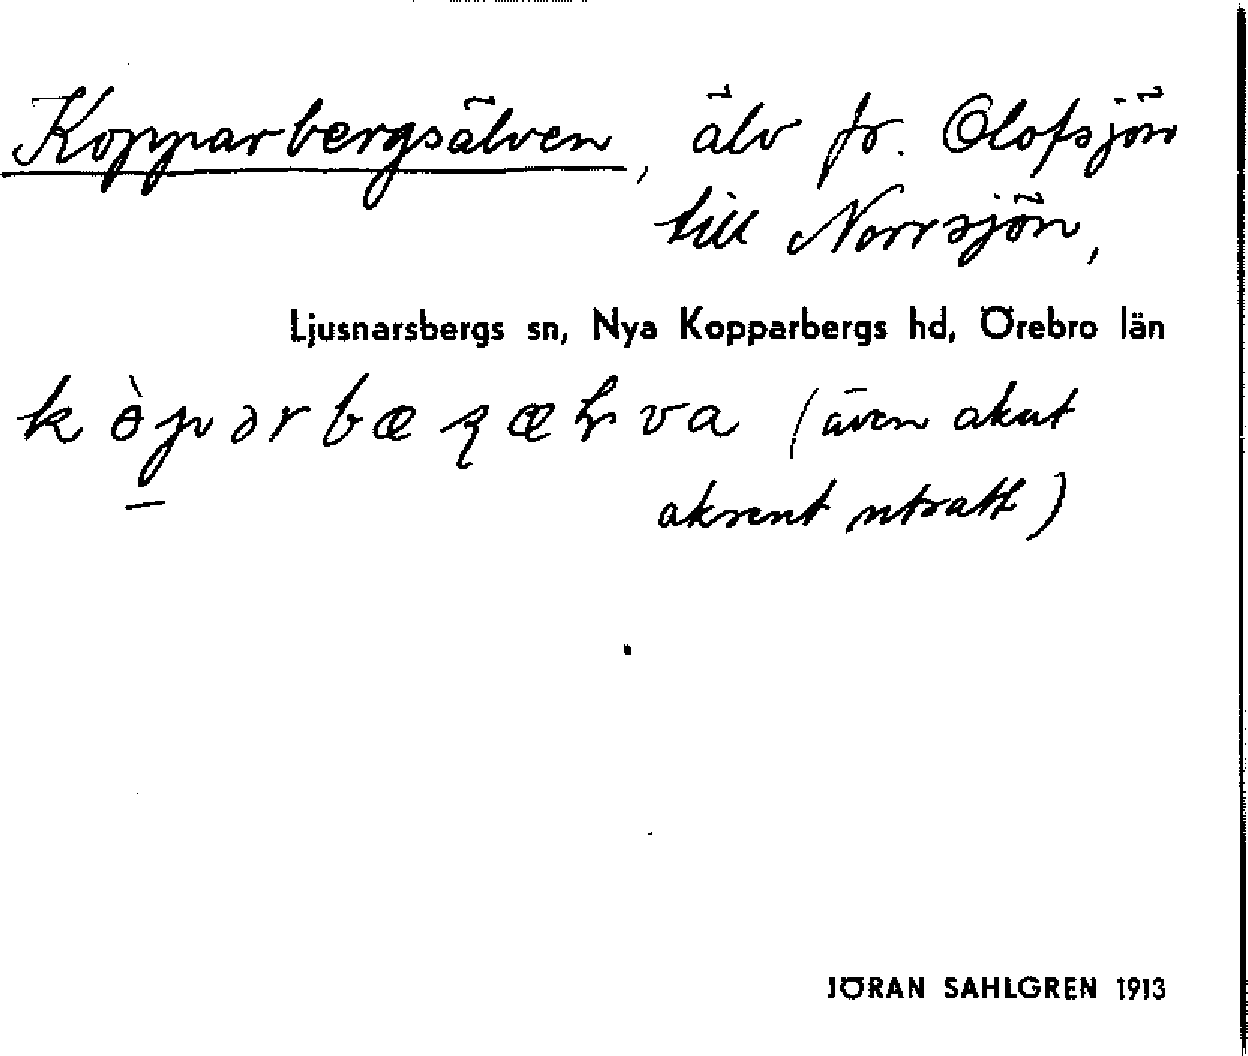 Kopparbergsälven, älv fr. Olofsjön
till Norrsjön,
Ljusnarsbergs sn, Nya Kopparbergs hd, Örebro län
(även akut
aksent uttratt)
JÖRAN SAHLGREN 1913